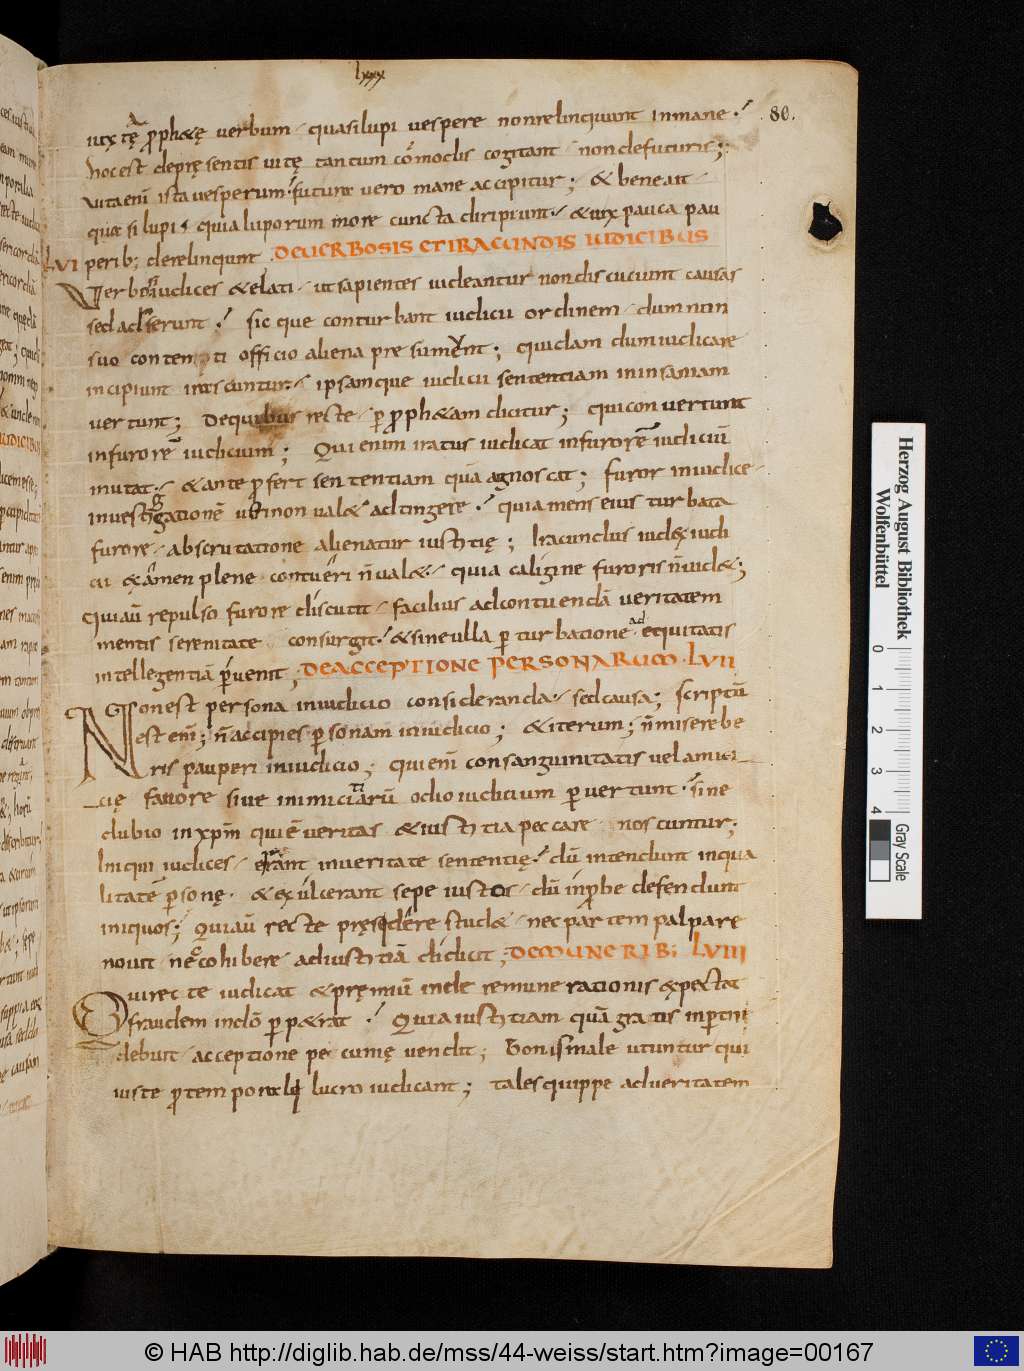 lxxx
80.
iuxtę prophetę verbum quasi lupi vespere non relinquunt in mane
hoc est de pręsentis uitę tantum cōmodis cogitant non de futuris;
uita enī ista vesperum futura vero mane accipitur; & bene ait
quasi lupi quia luporum more cuncta diripiunt & uix pauca pau
LVI perib; derelinquunt DE VERBOSIS ET IRACUNDIS IUDICIBUS
Verbosi iudices & elati ut sapientes uideantur non discutiunt causas
sed adserunt sic que conturbant iudicii ordinem dum non
suo contenti officio aliena presumunt; quidam dum iudicare
incipiunt irascuntur ipsam que iudicii sententiam in insaniam
vertunt; De quibus recte ꝑ prophetam dicitur; qui convertunt
in furorē iudicium; Qui enim iratus iudicat in furorē iudiciū
mutat & ante profert sententiam quā agnoscat; furor in iudice
investigationē ueri non ualet adtingere quia mens eius turbata
furore ab scrutatione alienatur iustitię; Iracundus iudex iudi
cii examen plene contueri n̄ valet quia caligine furoris n̄ uidet;
qui aū repulso furore discutit facilius ad contuendā veritatem
mentis serenitate consurgit & sine ulla perturbatione ad equitatis
intellegentiā ꝑvenit; DE ACCEPTIONE PERSONARUM LVII
Non est persona in iudicio consideranda sed causa; scriptū
est enī; n̄ accipies personam in iudicio; & iterum; n̄ misere be
ris pauperi in iudicio; qui enī consanguinitatis vel amici
cię favore sive inimicitiarū odio iudicium ꝑvertunt sine
dubio in xpm̄ qui ē veritas & iustitia peccare noscuntur;
Iniqui iudices errant in veritate sententię dū intendunt in qua
litatē personę & exulcerant sepe iustos dū inprobe defendunt
iniquos; Qui aū recte pręsidere studet nec partem palpare
novit nec cohibere ad iustitiā didicit; DE MUNERIB; LVIII
Qui recte iudicat & pręmiū inde remunerationis expectat
fraudem in dō perpetrat Quia iustitiam quā gratis inpertiri
debuit acceptione pecunię vendit; Bonis male utuntur qui
iuste pro temporali lucro iudicant; tales quippe ad veritatem
Herzog August Bibliothek
Wolfenbüttel
0 1 2 3 4
Gray Scale
© HAB http://diglib.hab.de/mss/44-weiss/start.htm?image=00167